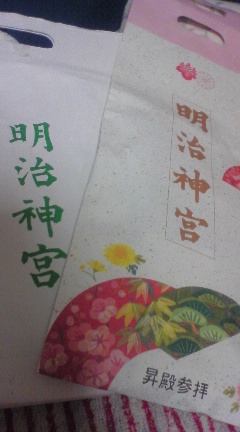 明治神宮
明治神宮
昇殿参拝